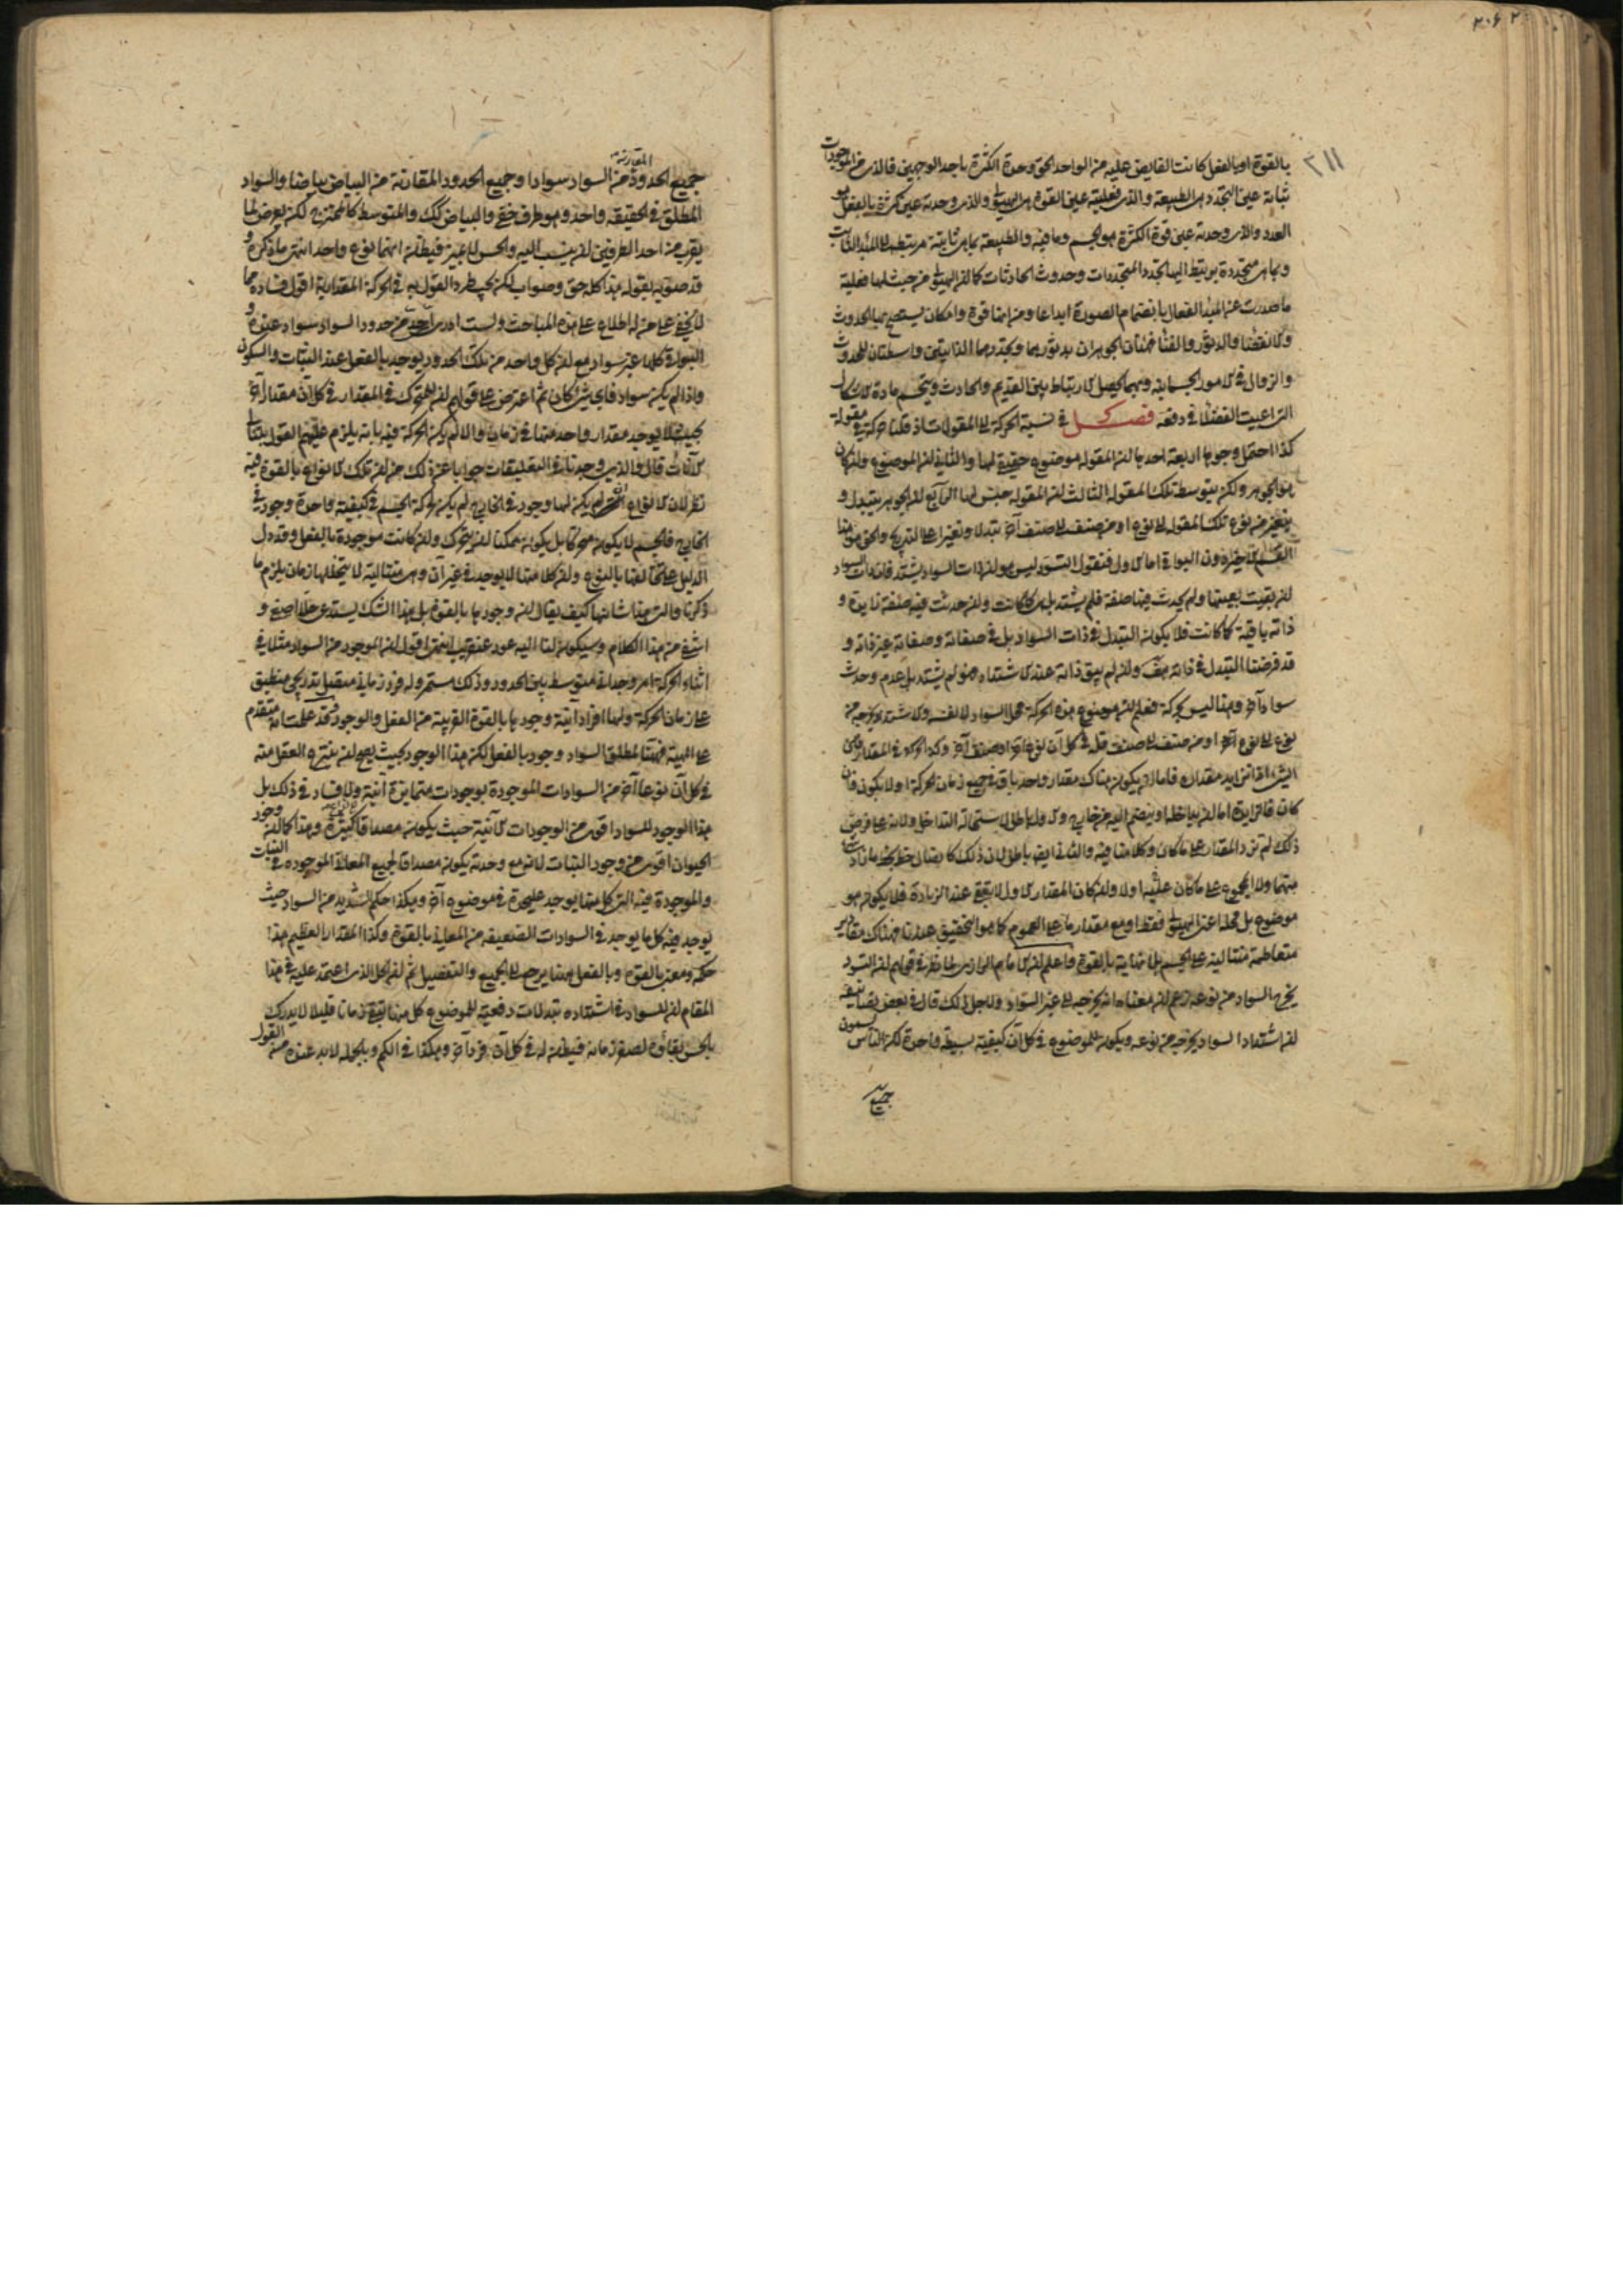 ٢٠۶ ٢
٢١١
بالقوة او بالفعل كانت الفايض عليه من الواحد الحق وحدة الكثرة باحد الوجهين فالذى من الموجودات
ثباته عين التجدد هى الطبيعة والذى فعليته عين القوة هى الهيولى والذى وحدته عين كثرة بالفعل هو
العدد والذى وحدته عين قوة الكثرة هو الجسم وما فيه والطبيعة بما هى ثابتة مرتبطة الى المبدأ الثابت
وبما هى متجددة يرتبط اليها تجدد المتجددات وحدوث الحادثات كما ان الهيولى من حيث لها فعلية
ما صدرت عن المبدأ الفعال بانضمام الصورة ابداعا ومن انها قوة وامكان يستصح بها الحدوث
والانقضاء والدثور والفناء فهذان الجوهران بدثورهما وتجددهما الذاتيين واسطتان للحدوث
والزوال فى الامور الجسمانيه وبهما يحصل الارتباط بين القديم والحادث وينحسم مادة الاشكال
التى اعيت الفضلاء فى دفعه فصل فى نسبة الحركة الى المقولات اذ قلنا حركة فى مقولة
كذا احتمل وجوها اربعة احدها ان المقوله موضوع حقيقى لها والثانى ان الموضوع وان كان
هو الجوهر ولكن بتوسط تلك المقوله الثالث ان المقوله جنس لها الرابع ان الجوهر يتبدل و
يتغير من نوع تلك المقوله الى نوع او من صنف الى صنف آخر تبدلا وتغيرا على التدريج والحق هو هذا
القسم الاخير دون البواقى اما الاول فنقول التسود ليس هو ان ذات السواد يشتد فان ذات السواد
ان بقيت بعينها ولم يحدث فيها صفة فلم يشتد بل هى كما كانت وان حدثت فيه صفة زايدة و
ذاته باقية كما كانت فلا يكون التبدل فى ذات السواد بل فى صفاته وصفاته غير ذاته و
قد فرضنا التبدل فى ذاته هف وان لم يبق ذاته عند الاشتداد فهو لم يشتد بل عدم وحدث
سواد آخر وهذا ليس بحركة فعلم ان موضوع هذه الحركة محل السواد لا نفسه والاشتداد يخرجه من
نوع الى نوع آخر او من صنف الى صنف فله فى كل آن نوع آخر او صنف آخر وكذا الحركة فى المقدار فان
الشىء اذا تزايد مقداره فاما ان يكون هناك مقدار واحد باق فى جميع زمان الحركة او لا يكون فان
كان فالزيادة اما ان يداخله او ينضم اليه من خارج والاول باطل لاستحالة التداخل ولانه على فرض
ذلك لم تزد المقدار على ما كان وكلامنا فيه والثانى ايضا باطل لان ذلك كاتصال خط بخط ما زاد شىء
منهما ولا المجموع على ما كان عليه اولا وان كان المقدار الاول لا يبقى عند الزيادة فلا يكون هو
موضوع بل محله اعنى الهيولى فقط او مع مقدار ما على العموم كما هو التحقيق عندنا فهناك مقادير
متعاظمة متتالية على الجسم بلا نهاية بالقوة واعلم ان الامام الرازى لما نظر فى قولهم ان التسود
يخرج السواد من نوعه زعم ان معناه انه يخرجه الى غير السواد ولاجل ذلك قال فى بعض تصانيفه
ان اشتداد السواد يخرجه من نوعه ويكون للموضوع فى كل آن كيفيه بسيطة واحدة لكن الناس يسمون
جميع
جميع الحدود المقاربة من السواد سوادا وجميع الحدود المقاربة من البياض بياضا والسواد
المطلق فى الحقيقه واحد وهو طرف خفى والبياض كك والمتوسط كالممتزج لكن يعرض لما
يقرب من احد الطرفين ان ينسب اليه والحس لا يميز فيظن انهما نوع واحد انتهى ما ذكره و
قد صوبه بقوله هذا كله حق وصواب لكن يجب طرد القول به فى الحركة المقدارية اقول فساده مما
لا يخفى على من له اطلاع على هذه المباحث ولست ادرى اى حد من حدود السواد سواد عنده و
البواقى كلها غير سواد مع ان كل واحد من تلك الحدود يوجد بالفعل عند الثبات والسكون
واذا لم يكن سواد فاى شىء كان ثم اعترض على قولهم ان للمتحرك فى المقدار فى كل آن مقدار آخر
بحيث لا يوجد مقدار واحد منها فى زمان والا لم يكن الحركة فيه بانه يلزم عليهم القول بتتالى
الآنات قال والذى وجدناه فى التعليقات جوابا عن ذلك من ان تلك الانواع بالقوة فيه
نظر لان الانواع التى لم يكن لها وجود فى الخارج لم يكن لحركة الجسم فى كيفية واحدة وجود فى
الخارج فالجسم لا يكون متحركا بل يكون ممكنا ان يتحرك وان كانت موجودة بالفعل وقد دل
الدليل على تخالفها بالنوع وان كلا منها لا يوجد فى غير آن وهى متتالية لا يتخللها زمان يلزم ما
ذكرنا والتى هذا شانها كيف يقال ان وجودها بالقوة بل هذا الشك يستدعى حلا اصفى و
اشفى من هذا الكلام وسيكون لنا اليه عود عنقريب انتهى اقول ان الموجود من السواد مثلا فى
اثناء الحركة امر وحدانى متوسط بين الحدود وذلك مستمر وله فرد زمانى متصل تدريجى منطبق
على زمان الحركة ولها افراد آنية وجودها بالقوة القريبة من الفعل والوجود قد علمت انه متقدم
على المهية فههنا لمطلق السواد وجود بالفعل لكن هذا الوجود بحيث يصح ان ينتزع العقل منه
فى كل آن نوعا آخر من السوادات الموجودة بوجودات متمايزة آنية ولا فساد فى ذلك بل
هذا الوجود للسواد اقوى من الوجودات الآنية حيث يكون مصداقا لانواع كثيرة وهذا كما ان وجود
الحيوان اقوى من وجود النبات لانه مع وحدته يكون مصداقا لجميع المعانى الموجوده فى النبات
والموجودة فيه التى كل منها يوجد عليحدة فى موضوع آخر وهكذا حكم الشديد من السواد حيث
يوجد فيه كل ما يوجد فى السوادات الضعيفه من المعانى بالقوة وكذا المقدار العظيم هذا
حكمه ومعنى بالقوة وبالفعل ههنا يرجع الى الجمع والتفصيل ثم ان الحل الذى اعتمد عليه فى هذا
المقام ان للسواد فى اشتداده تبدلات دفعية للموضوع كل منها يبقى زمانا قليلا لا يدرك
بالحس بقاؤه لصغر زمانه فيظن ان له فى كل آن فرد آخر وهكذا فى الكم وبالجمله لابد عنده من القول